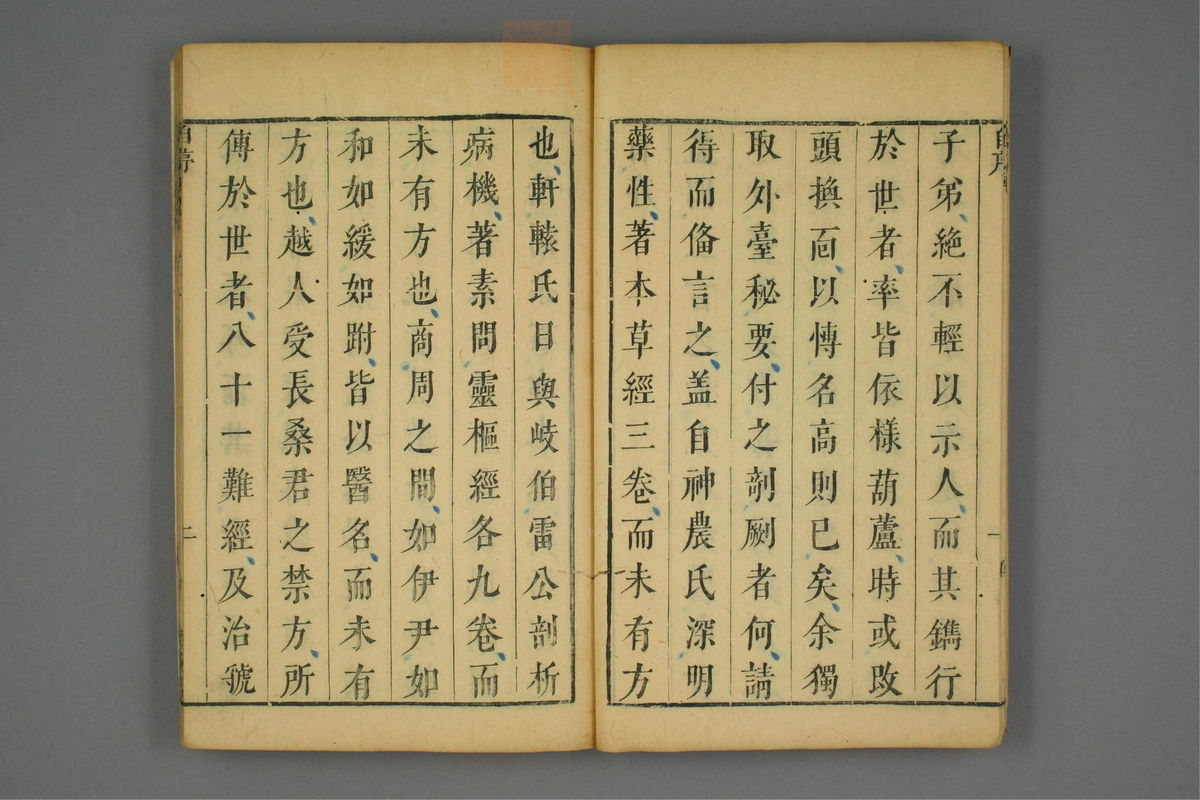 自序
子弟絶不輕以示人而其鐫行
於世者率皆依樣葫蘆時或改
頭換面以愽名高則已矣余獨
取外臺秘要付之剞劂者何請
得而俻言之盖自神農氏深明
藥性著本草經三卷而未有方
也軒轅氏日與岐伯雷公剖析
病機著素問靈樞經各九卷而
未有方也商周之間如伊尹如
和如緩如跗皆以醫名而未有
方也越人受長桑君之禁方所
傳於世者八十一難經及治虢
自序
二